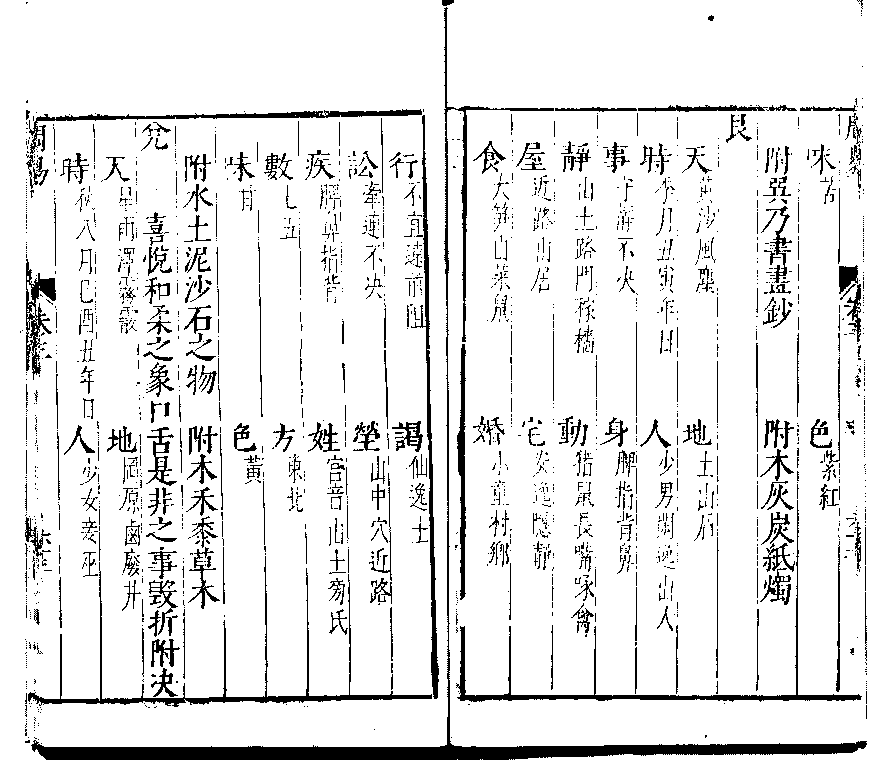 味苦 色紫紅
附巽乃書畫鈔 附木灰炭紙燭
艮
天黃沙風塵 地土山石
時季月丑寅年日 人少男閑逸山人
事守靜不決 身脾指背鼻
靜山土路門 動猪鼠長嘴啄禽
屋近路山居 宅安逸隱靜
食大笋山菜鼠 婚小童村鄉
行不直遠而阻 謁仙逸士
訟牽連不决 塋山中穴近路
疾脾鼻指背 姓宮音山土旁氏
數七五 方東北
味甘 色黃
附水土泥沙石之物 附木禾黍草木
兊 喜悅和柔之象口舌是非之事毀折附决
天星雨澤霧 地岡原鹵廢井
時秋八月巳酉丑年日 人少女妾巫